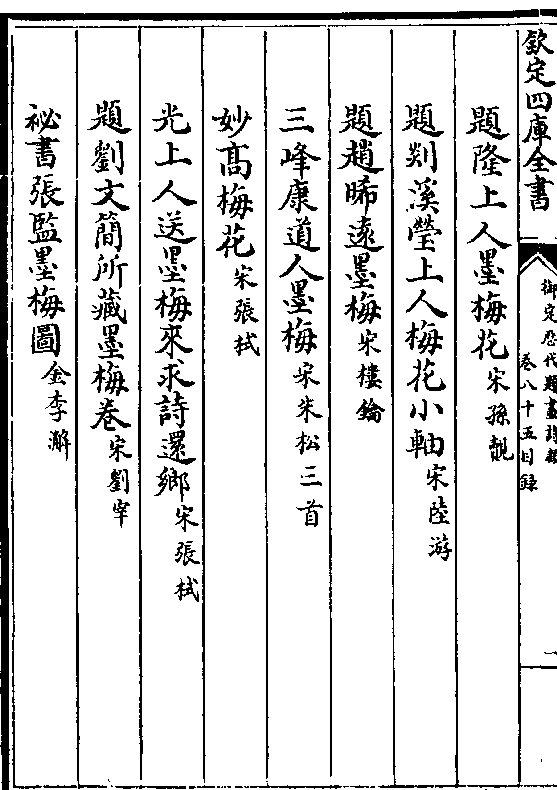 欽定四庫全書
御定歷代題畫詩類
卷八十五目錄
一
題隆上人墨梅花 宋孫覿
題剡溪瑩上人梅花小軸 宋陸游
題趙晞遠墨梅 宋樓鑰
三峰康道人墨梅 宋朱松三首
妙高梅花 宋張栻
光上人送墨梅來求詩還鄉 宋張栻
題劉文簡所藏墨梅卷 宋劉宰
祕書張監墨梅圖 金李澥